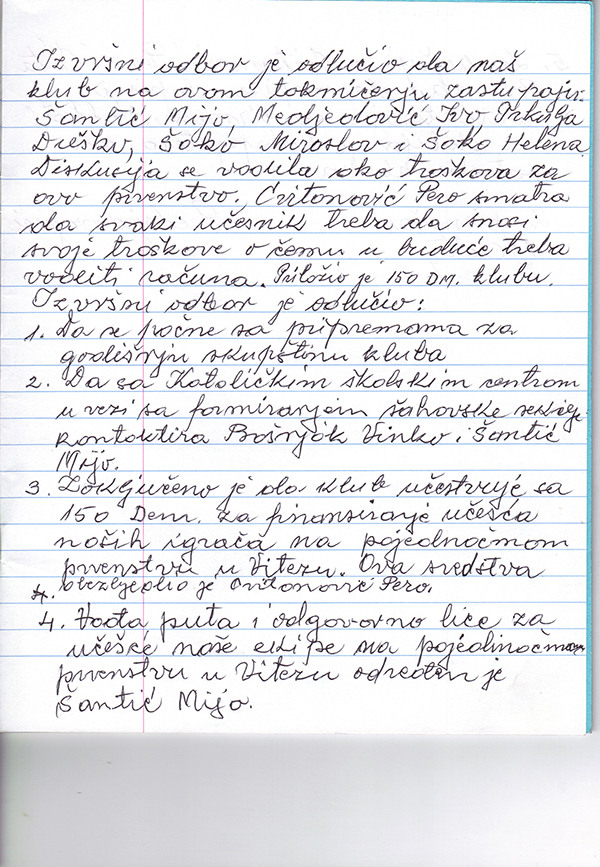 Izvršni odbor je odlučio da naš
klub na ovom takmičenju zastupaju:
Šantić Mijo, Medjedović Ivo Prkulja
Duško, Šoko Miroslov i Šoko Helena
Diskusija se vodila oko troškova za
ovo prvenstvo. Cvitonović Pero smatra
da svaki učesnik treba da snosi
svoje troškove o čemu u buduće treba
voditi računa. Priložio je 150 DM. klubu.
Izvršni odbor je odlučio:
1. Da se počne sa pripremama za
godišnju skupštinu kluba
2. Da sa Katoličkim školskim centrom
u vezi sa formiranjem šahovske sekcije
kontaktira Bošnjak Vinko i Šantić
Mijo.
3. Zaključeno je da klub učestvuje sa
150 Dem. za finansiranje učešća
naših igrača na pojedinačnom
prvenstvu u Vitezu. Ova sredstva
4. obezbjedio je Cvitonović Pero.
4. Vođa puta i odgovorno lice za
učešće naše ekipe na pojedinačnom
prvenstvu u Vitezu određen je
Šantić Mijo.